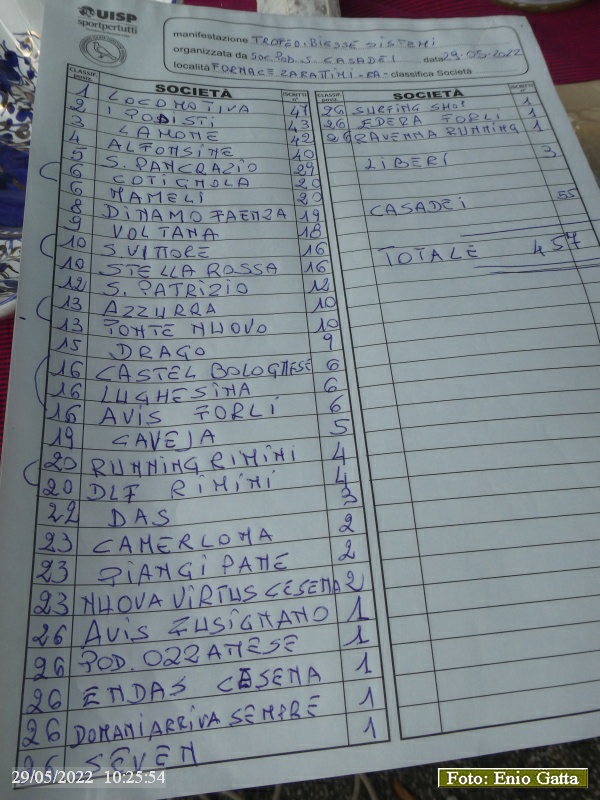 UISP
sportpertutti
manifestazione TROFEO. BIESSE SISTEMI
organizzata da SOC. POD. S. CASADEI data 29-05-2022
località FORNACE ZARATTINI - RA - classifica Società
CLASSIFIC. posto SOCIETÀ ISCRITTI n°
1 LOCOMOTIVA 47
2 I PODISTI 43
3 LAMONE 42
4 ALFONSINE 40
5 S. PANCRAZIO 29
6 COTIGNOLA 20
6 MAMELI 20
8 DINAMO FAENZA 19
9 VOLTANA 18
10 S. VITTORE 16
10 STELLA ROSSA 16
12 S. PATRIZIO 12
13 AZZURRA 10
13 PONTE NUOVO 10
15 DRAGO 9
16 CASTEL BOLOGNESE 6
16 LUGHESINA 6
16 AVIS FORLI 6
19 CAVEJA 5
20 RUNNING RIMINI 4
20 DLF RIMINI 4
22 DAS 3
23 CAMERLONA 2
23 PIANGIPANE 2
23 NUOVA VIRTUS CESENA 2
26 AVIS FUSIGNANO 1
26 POD. OZZANESE 1
26 ENDAS CESENA 1
26 DOMANI ARRIVA SEMPRE 1
26 SEVEN 1
CLASSIFIC. posto SOCIETÀ ISCRITTI n°
26 SURFING SHOP 1
26 EDERA FORLI 1
26 RAVENNA RUNNING 1
LIBERI 3
CASADEI 55
TOTALE 457
29/05/2022 10:25:54
Foto: Enio Gatta